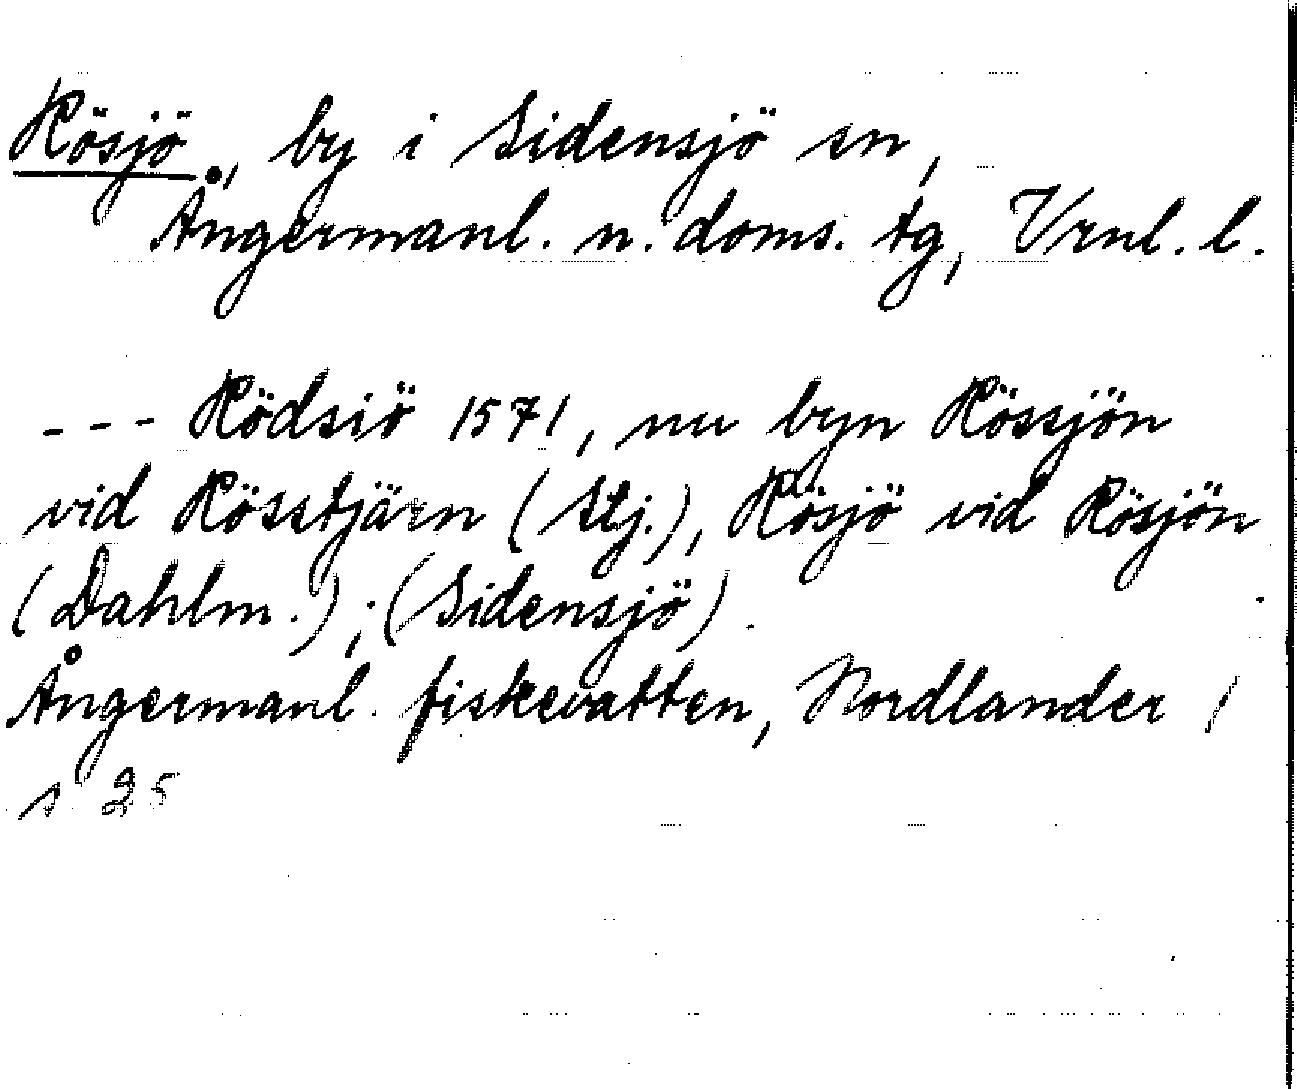 Rösjö, by i Sidensjö sn,
Ångermanl. n. doms. tg, Vrnl. l.
--- Rödsiö 1571, nu byn Rössjön
vid Rösstjärn (Stj.), Rösjö vid Rösjön
(Dahlm.); (Sidensjö).
Ångermanl. fiskevatten, Nordlander /
s 25